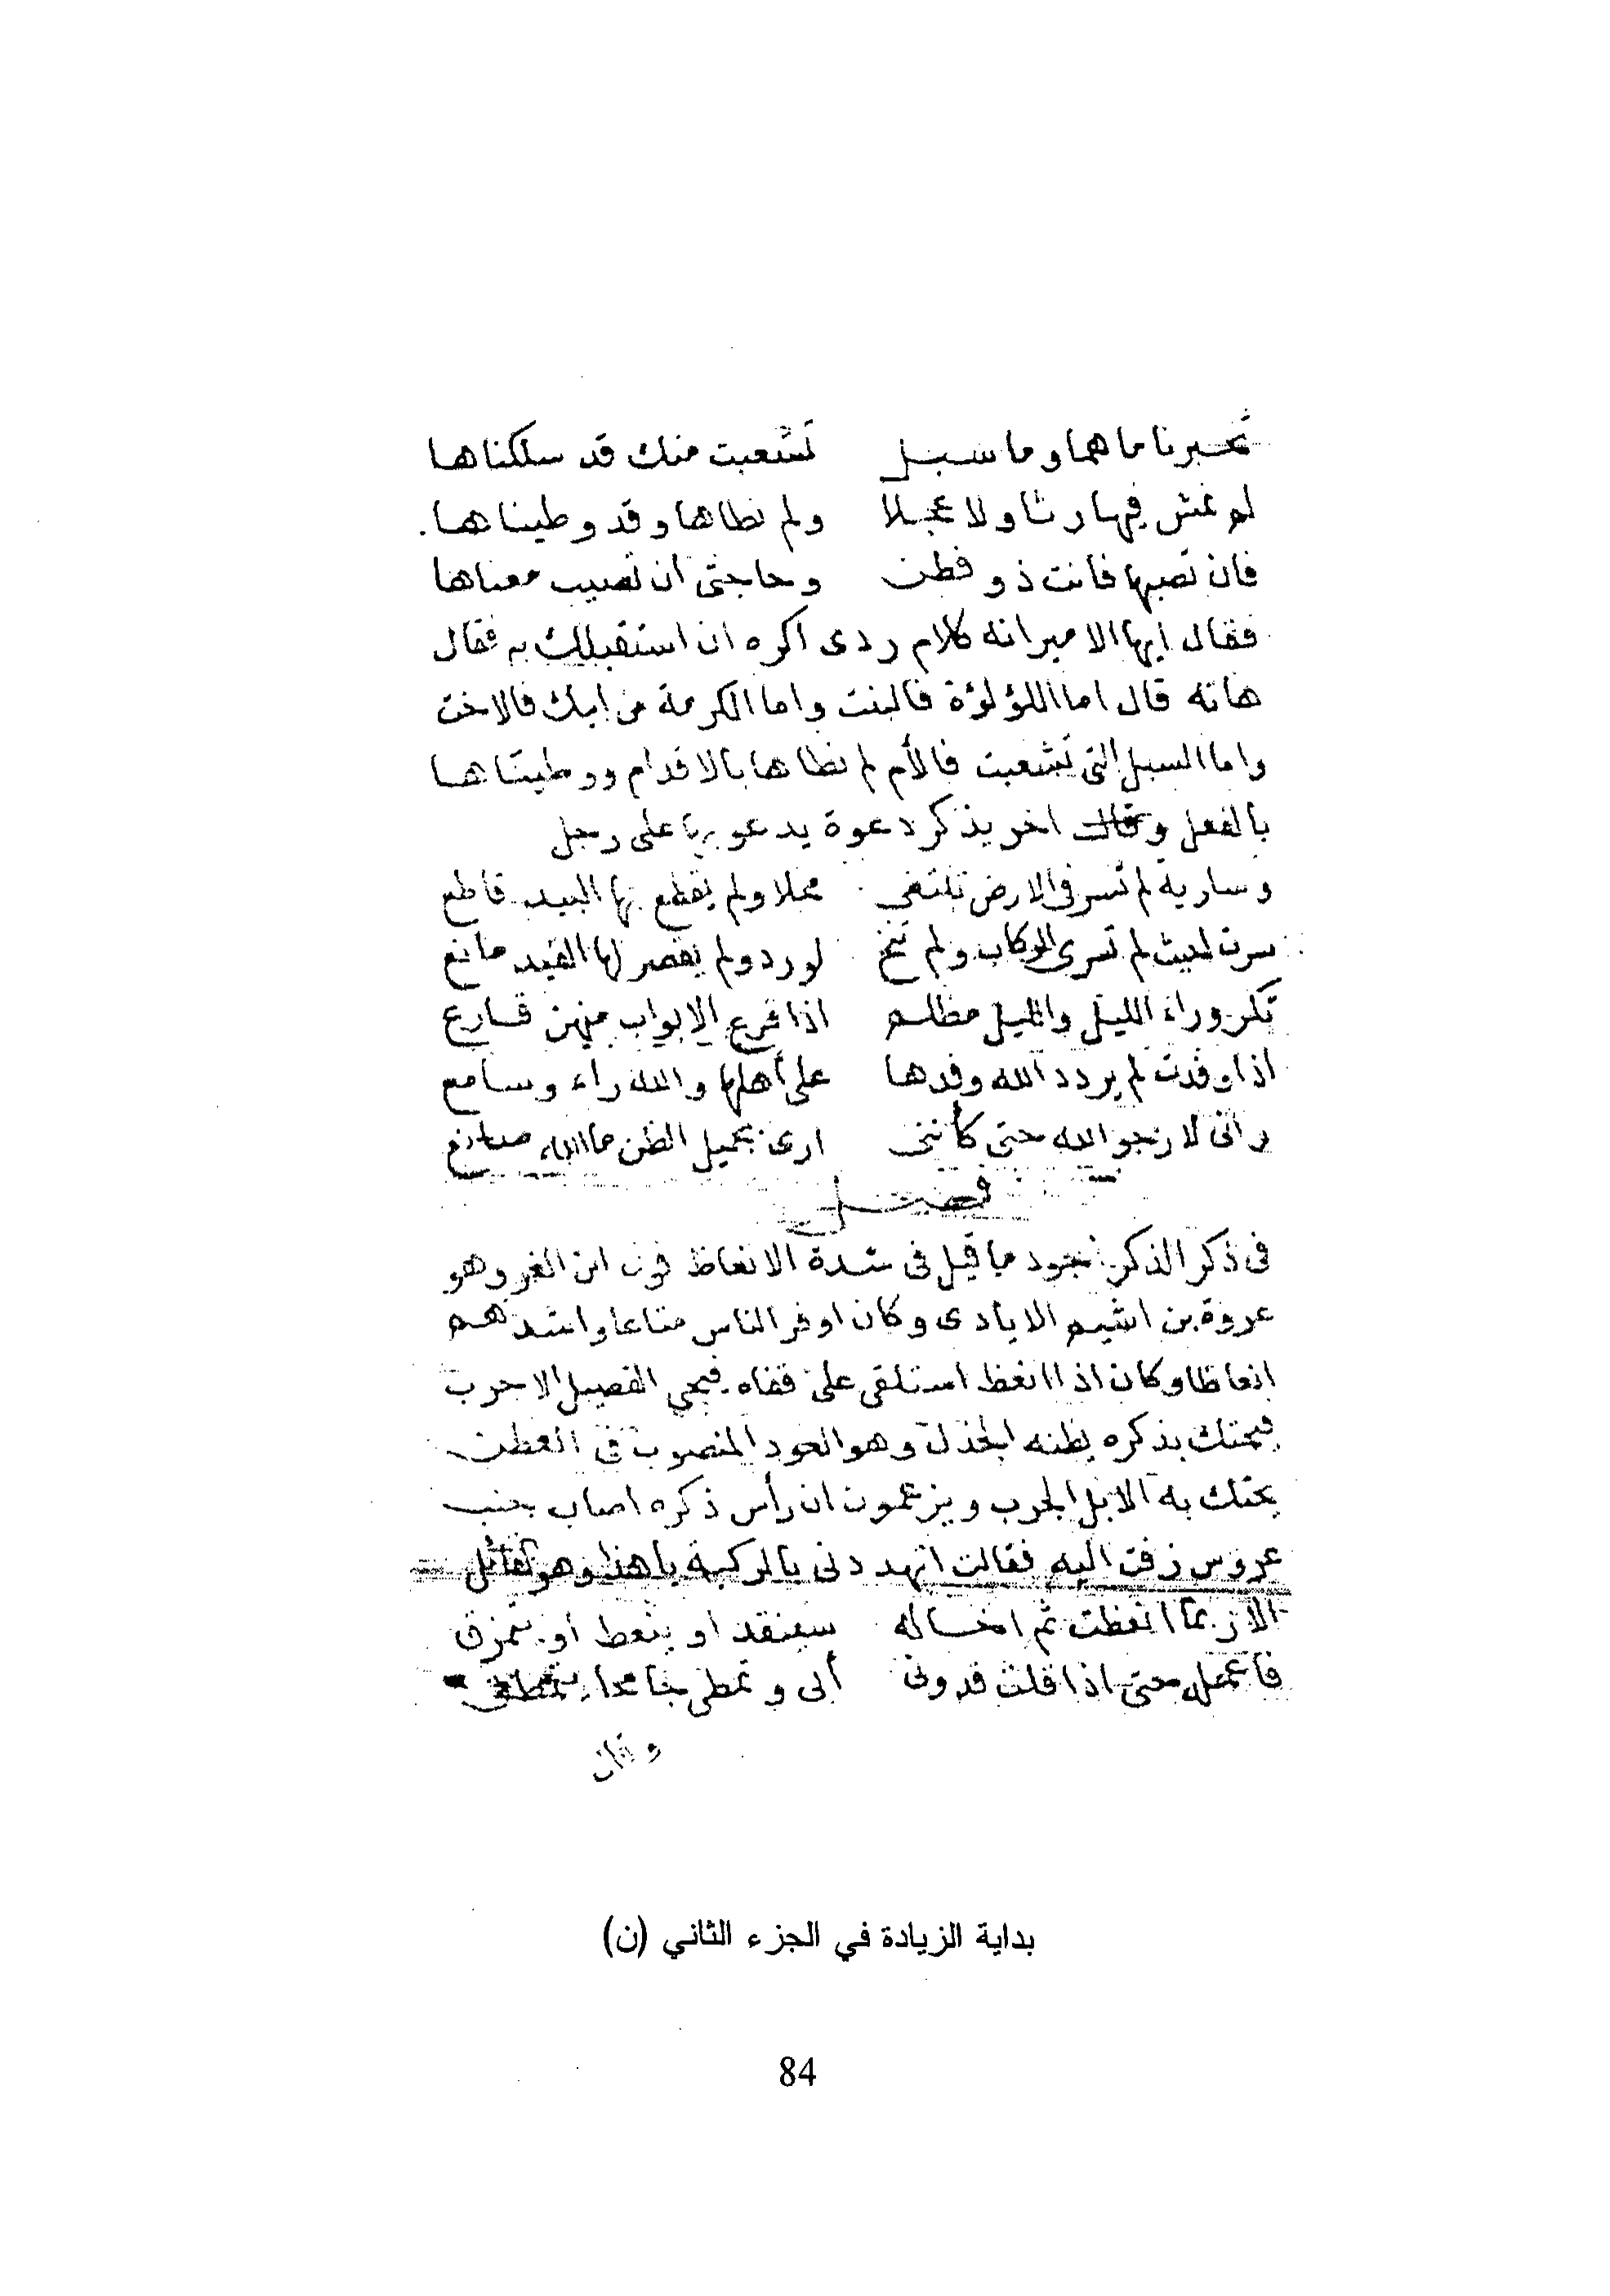 تخبرنا ما هما وما سبل تشعبت منك قد سلكناها
لم نمش فيها رثا ولا عجلا ولم نطاها وقد وطيناها.
فان تصبها فانت ذو فطن وحاجتى ان تصيب معناها
فقال ايها الامير انه كلام ردى اكره ان استقبلك به فقال
هاته قال اما اللؤلؤة فالبنت واما الكرمة من ابيك فالاخت
واما السبل التى تشعبت فالأم لم نطاها بالاقدام ووطيناها
بالفعل وقال اخر يذكر دعوة يدعو بها على رجل
وسارية لم تسر فى الارض تبتغى محلا ولم يقطع بها البيد قاطع
سرت لحيث لم تسرى الركاب ولم تنخ لورد ولم يقصر لها القيد مانع
تكر وراء الليل والليل مظلم اذا قرع الابواب منهن قارع
اذا وفدت لم يردد الله وفدها على أهلها والله راء وسامع
وانى لارجو الله حتى كأننى ارى بجميل الظن ما الله صانع
فصل
فى ذكر الذكر اجود ما قيل فى شدة الانعاظ قول ابن الغز وهو
عروة بن اشيم الايادى وكان اوفر الناس متاعا واشدهم
انعاظا وكان اذا انعظ استلقى على قفاه فيجى الفصيل الاجرب
فيحتك بذكره يظنه الجذل وهو العود المنصوب فى العطن
يحتك به الابل الجرب ويزعمون ان رأس ذكره اصاب بجنب
عروس زفت اليه فقالت اتهددنى بالركبة يا هذا وهو القائل
الا ربما انعظت ثم اخاله سينقد او ينعط او يتمزق
فاعمله حتى اذا قلت قد ونى أبى وتمطى جامحا يتمطق
وقال
بداية الزيادة في الجزء الثاني (ن)
84